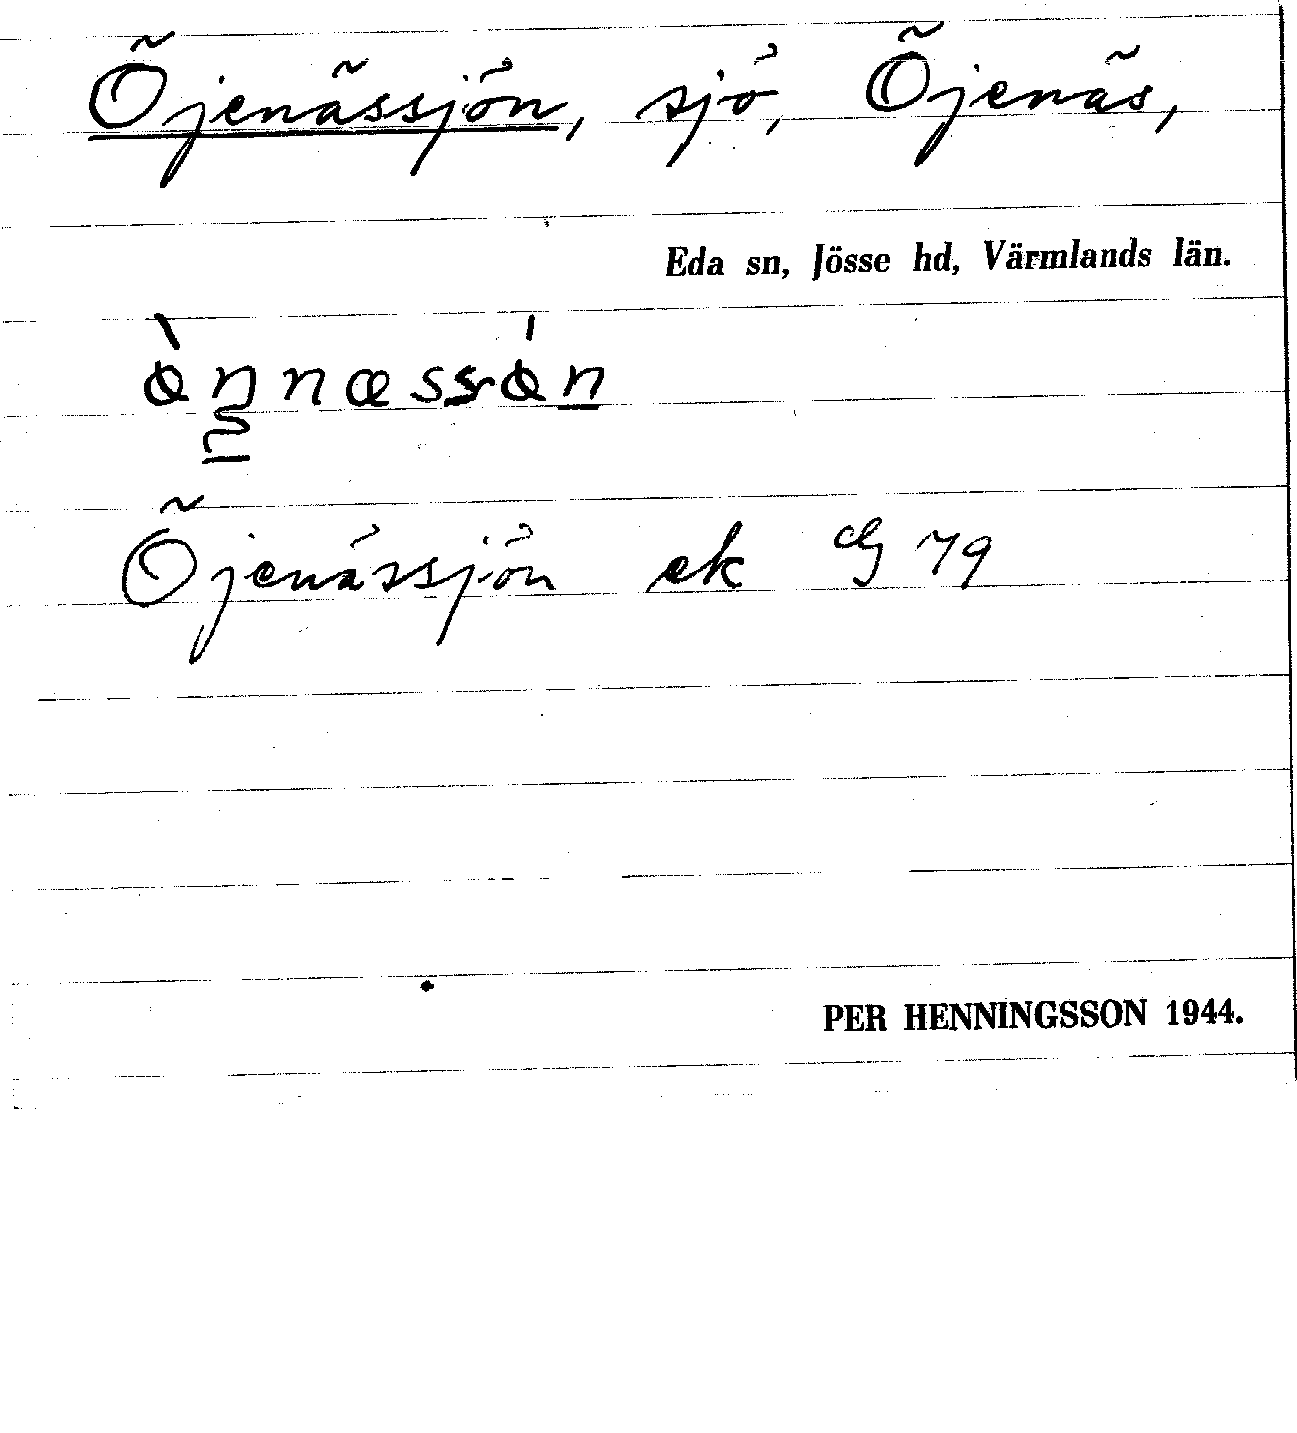 Öjenässjön, sjö, Öjenäs,
Eda sn, Jösse hd, Värmlands län.
Öjenässjön ek 79
PER HENNINGSSON 1944.